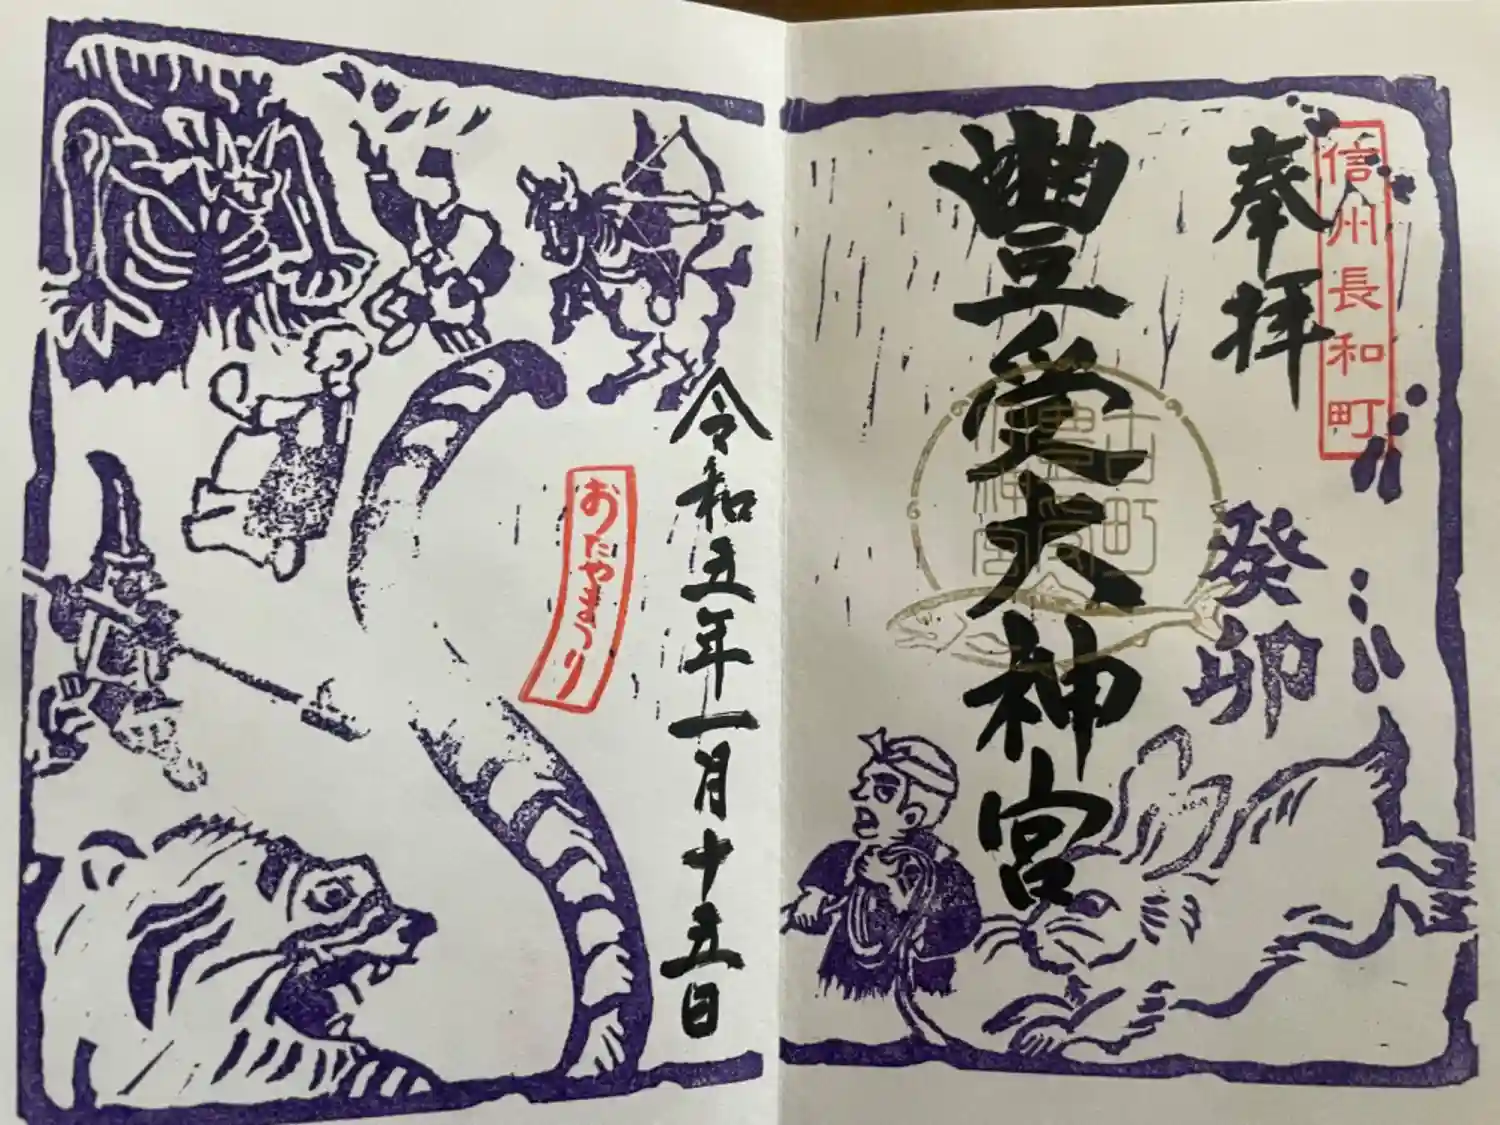 信州長和町
奉拝
癸卯
豊受大神宮
古町
豊受
神宮
令和五年一月十五日
おたやまつり